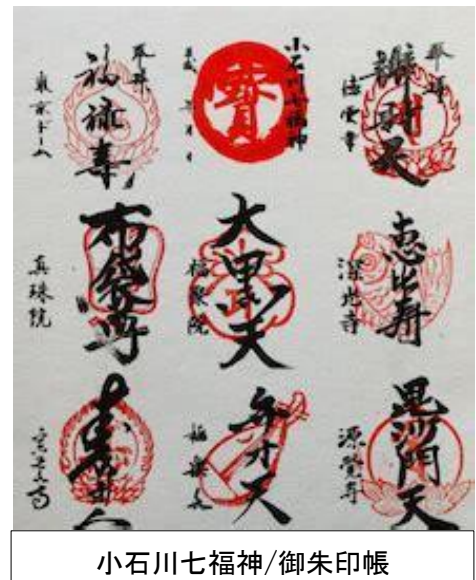 奉拝
辨財天
徳雲寺
恵比寿
深光寺
毘沙門天
源覚寺
小石川七福神
寶
大黒天
福聚院
弁才天
極楽水
奉拝
福禄寿
東京ドーム
布袋尊
真珠院
小石川七福神/御朱印帳